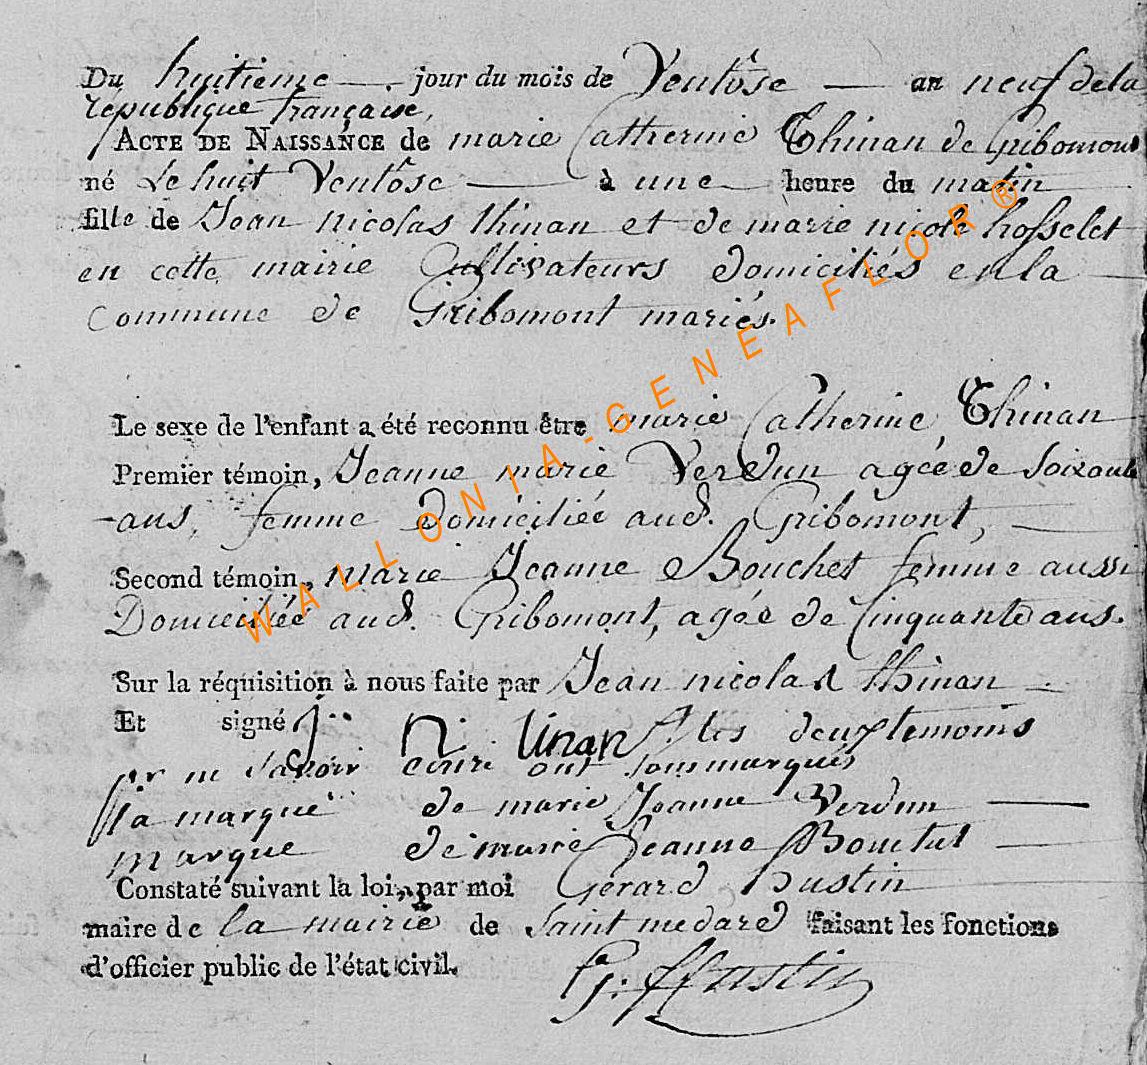 Du huitieme jour du mois de Ventôse an neuf de la
république française,
ACTE DE NAISSANCE de marie Catherine Thinan de Gribomont
né le huit Ventôse à une heure du matin
fille de Jean nicolas thinan et de marie nicole hosselet
en cette mairie Cultivateurs domiciliés en la
Commune de Gribomont mariés.
Le sexe de l'enfant a été reconnu être marie Catherine Thinan
Premier témoin, Jeanne marie Verdun agée de soixante
ans, femme domiciliée aud. Gribomont,
Second témoin, Marie Jeanne Bouchet femme aussi
Domiciliée aud. Gribomont, agée de Cinquante ans.
Sur la réquisition à nous faite par Jean nicolas thinan
Et signé j n tinan les deux temoins
savoir ecrire ont sousmarqués
la marque de marie Jeanne Verdun
marque de marie Jeanne Bouchet
Constaté suivant la loi, par moi Gerard hustin
maire de la mairie de Saint medard faisant les fonctions
d'officier public de l'état civil.
G. hustin
WALLONIA-GENEAFLOR®